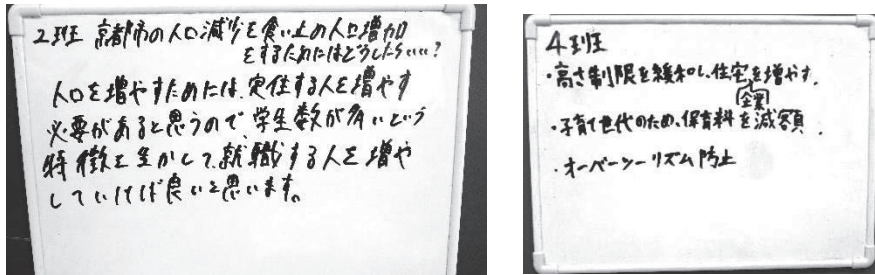 2班 京都市の人口減少を食い止め人口増加
をするためにはどうしたらいい?
人口を増やすためには、定住する人を増やす
必要があると思うので、学生数が多いという
特徴を生かして、就職する人を増や
していけば良いと思います。
4班
・高さ制限を緩和し、住宅を増やす。
企業
・子育て世代のため、保育料を減額。
・オーバーツーリズム防止